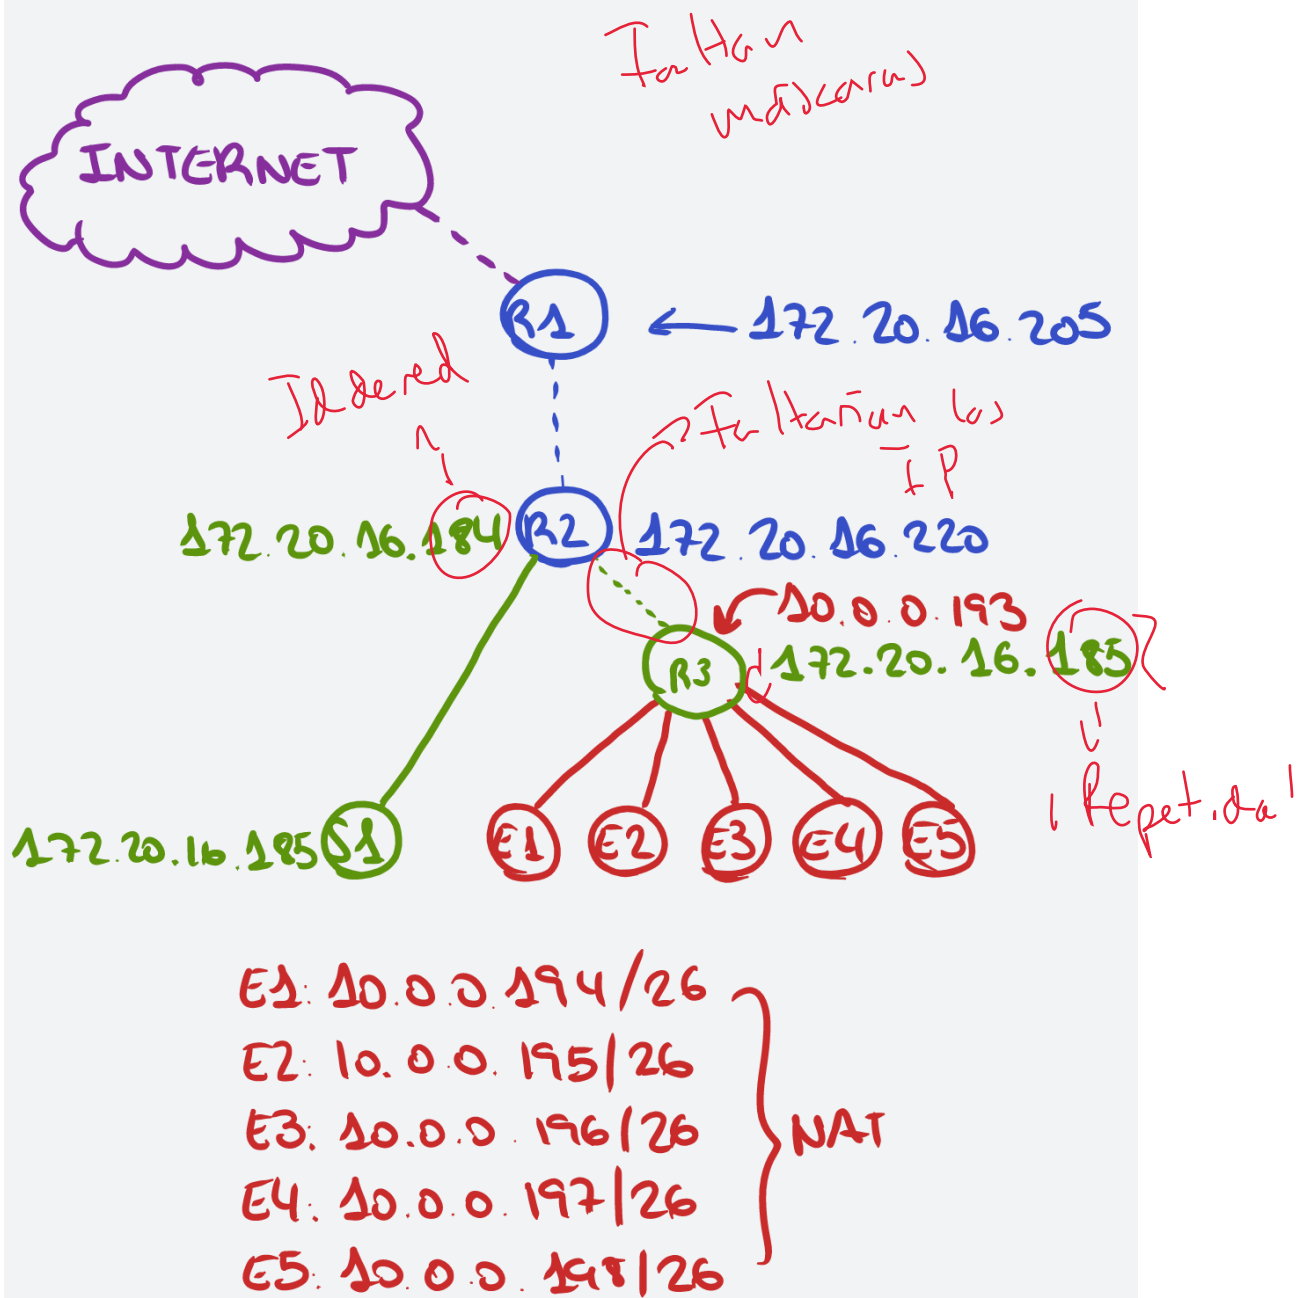 Faltan
máscaras
INTERNET
R1
172.20.16.205
Id de red
Faltarían las
IP
172.20.16.184
R2
172.20.16.220
10.0.0.193
R3
172.20.16.185
¡Repetida!
172.20.16.185
S1
E1
E2
E3
E4
E5
E1: 10.0.0.194/26
E2: 10.0.0.195/26
E3: 10.0.0.196/26
E4: 10.0.0.197/26
E5: 10.0.0.198/26
NAT